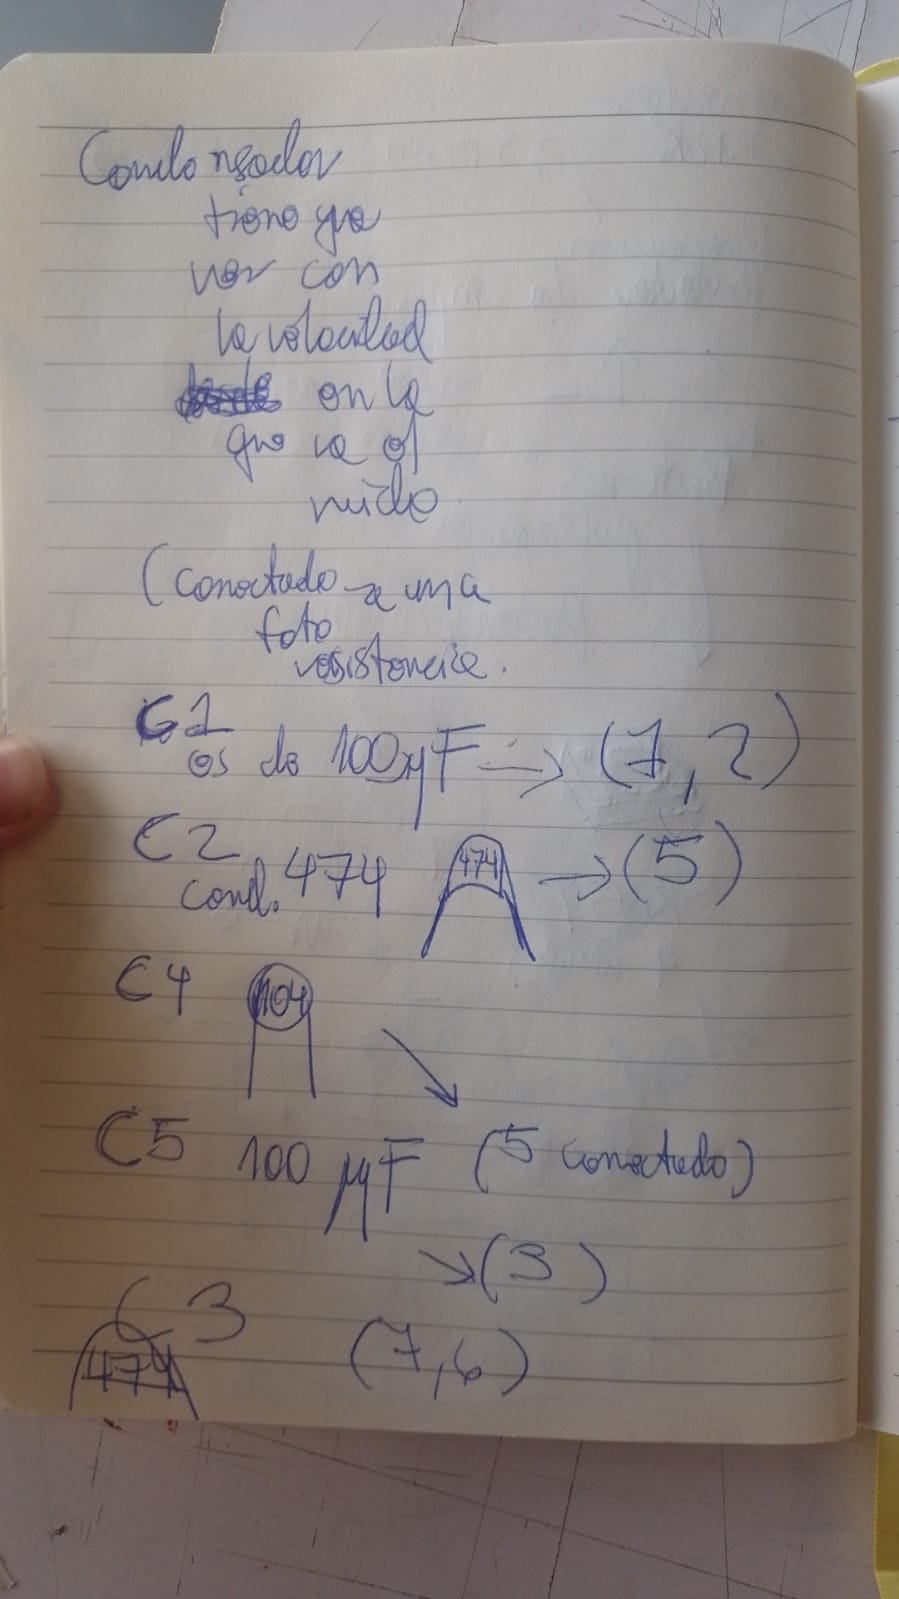 Condensador
tiene que
ver con
la velocidad
en la
que va el
ruido
(Conectado a una
foto
resistencia.
C1
es de 100µF → (7, 2)
C2
cond. 474 474 → (5)
C4 104
C5 100 µF (5 conectado)
↘ (3)
C3
474 (7, 6)